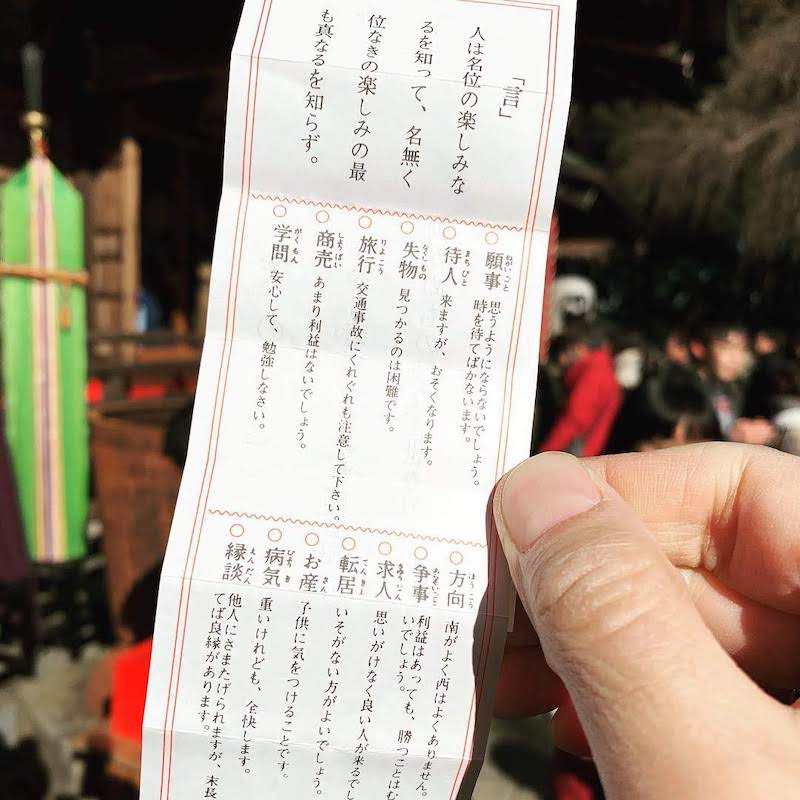 「言」
人は名位の楽しみな
るを知って、名無く
位なきの楽しみの最
も真なるを知らず。
願事 ねがいごと
思うようにならないでしょう。
時を待てばかないます。
待人 まちびと
来ますが、おそくなります。
失物 なくしもの
見つかるのは困難です。
旅行 りょこう
交通事故にくれぐれも注意して下さい。
商売 しょうばい
あまり利益はないでしょう。
学問 がくもん
安心して、勉強しなさい。
方向 ほうこう
南がよく西はよくありません。
争事 あらそいごと
利益はあっても、勝つことはむ
いでしょう。
求人 きゅうじん
思いがけなく良い人が来るでし
転居 てんきょ
いそがない方がよいでしょう。
お産 さん
子供に気をつけることです。
病気 びょうき
重いけれども、全快します。
縁談 えんだん
他人にさまたげられますが、末長
てば良縁があります。